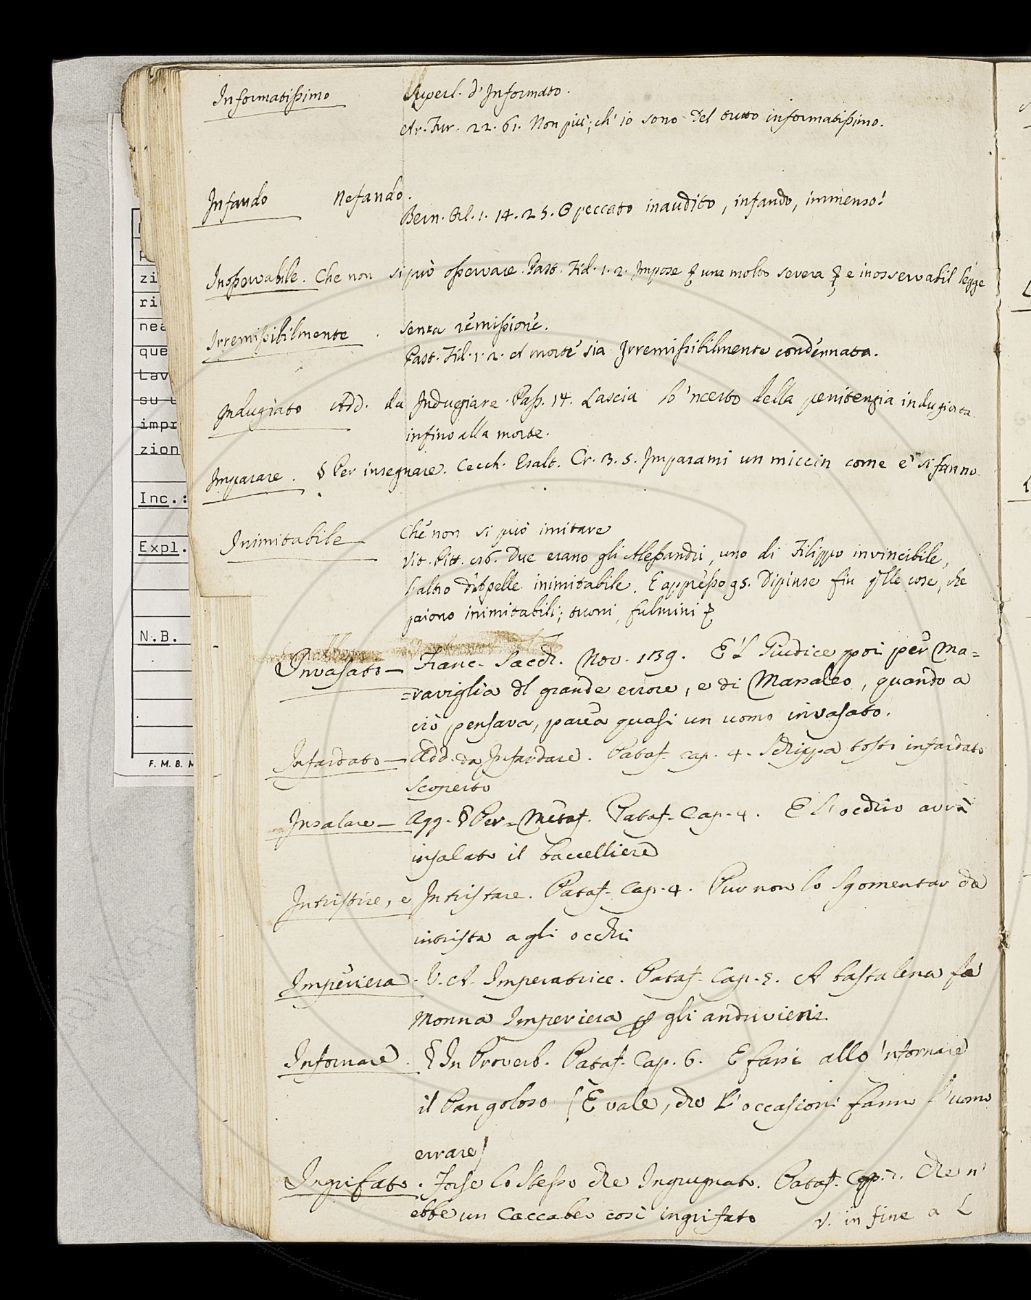 Informatissimo Superl. d'Informato.
Ar. Fur. 22. 61. Non più; ch'io sono del tutto informatissimo.
Infando Nefando.
Bern. Orl. 1. 14. 25. O peccato inaudito, infando, immenso!
Inosservabile. Che non si può osservare. Past. Fid. 1. 2. Impose una molto severa e inosservabil legge
Irremissibilmente. Senza remissione.
Past. Fid. 1. 2. A morte sia Irremissibilmente condennata.
Indugiato Add. da Indugiare. Pass. 14. Lascia lo 'ncerto della penitenzia indugiata
infino alla morte.
Imparare. § Per insegnare. Cecch. Esalt. Cr. 3. 5. Imparami un miccin come e' si fanno
Inimitabile Che non si può imitare
Vit. Pitt. Due erano gli Alessandri, uno di Filippo invincibile,
l'altro inimitabile. E appresso 95. Dipinse fin qlle cose, che
paiono inimitabili; tuoni, fulmini
Invasato — Franc. Sacch. Nov. 139. E 'l Giudice poi per Ma=
=raviglia dl grande errore, e di Massaleo, quando a
ciò pensava, parea quasi un uomo invasato.
Infardato — Add. da Infardare. Pataf. cap. 4. tosto infardato
scoperto
Insalare — Agg. § Per Metaf. Pataf. Cap. 4. E l'occhio avrà
insalato il baccelliere
Intristire, e Intristare. Pataf. Cap. 4. Pur non lo sgomentar che
intrista agli occhi
Imperiera. V. A. Imperatrice. Pataf. Cap. 8. A tastalena fa
Monna Imperiera gli andirivieni.
Infornare. § In Proverb. Pataf. Cap. 6. E fassi allo 'nfornare
il Pan goloso (E vale, che l'occasioni fanno l'uomo
errare)
Ingrifato. Forse lo stesso che Ingrugnato. Pataf. Cap. 7. Che n'
ebbe un Caccabo così ingrifato v. in fine a L
zi
ri
nea
que
Lav
su
impr
zion
Inc.:
Expl.
N.B.
F. M. B. M